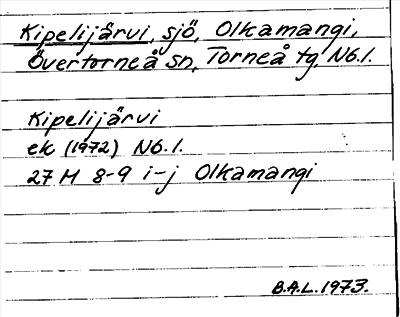 Kipelijärvi, sjö, Olkamangi,
Övertorneå sn, Torneå tg. Nb.l.
Kipelijärvi
ek (1972) Nb.l.
27 M 8-9 i-j Olkamangi
B.A.L. 1973.